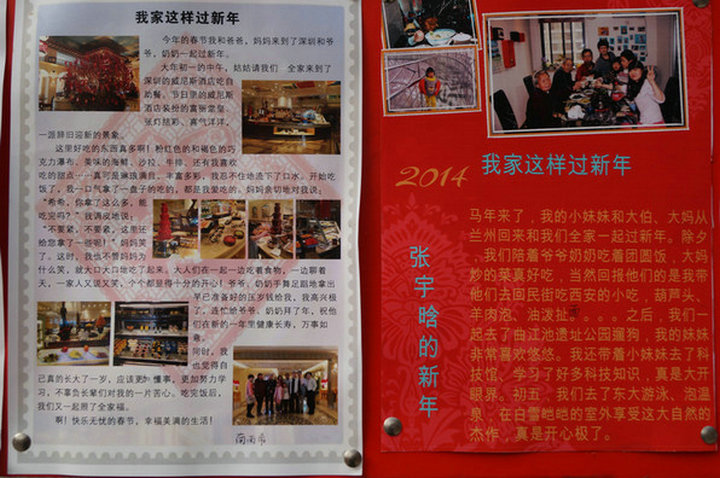 我家这样过新年
今年的春节我和爸爸，妈妈来到了深圳和爷
爷，奶奶一起过新年。
大年初一的中午，姑姑请我们　全家来到了
深圳的威尼斯酒店吃自
助餐。节日里的威尼斯
酒店装扮的富丽堂皇、
张灯结彩、喜气洋洋，
一派辞旧迎新的景象。
这里好吃的东西真多啊！粉红色的和褐色的巧
克力瀑布、美味的海鲜、沙拉、牛排，还有我喜欢
吃的甜点……真可是琳琅满目，丰富多彩，我忍不住地流下了口水。开始吃
饭了，我一口气拿了一盘子的吃的，都是我爱吃的。妈妈亲切地对我说：
“希希，你拿了这么多，能
吃完吗？”我调皮地说：
“不要紧，不要紧，这里还
给您拿了一些呢！”妈妈笑
了。这时，我也不管妈妈为
什么笑，就大口大口地吃了起来。大人们在一起一边吃着食物，一边聊着
天，一家人又说又笑，个个都显得十分的开心！爷爷，奶奶手舞足蹈地拿出
早已准备好的压岁钱给我，我高兴极
了，连忙给爷爷、奶奶拜了年，祝他
们在新的一年里健康长寿，万事如
意。
同时，我
也觉得自
己真的长大了一岁，应该更加懂事，更加努力学
习，不辜负长辈们对我的一片苦心。吃完饭后，
我们又一起照了全家福。
啊！快乐无忧的春节，幸福美满的生活！
2014
我家这样过新年
张宇晗的新年
马年来了，我的小妹妹和大伯、大妈从
兰州回来和我们全家一起过新年。除夕
，我们陪着爷爷奶奶吃着团圆饭，大妈
炒的菜真好吃，当然回报他们的是我带
他们去回民街吃西安的小吃，葫芦头、
羊肉泡、油泼扯面。。。。之后，我们一
起去了曲江池遗址公园遛狗，我的妹妹
非常喜欢悠悠。我还带着小妹妹去了科
技馆，学习了好多科技知识，真是大开
眼界。初五，我们去了东大游泳、泡温
泉，在白雪皑皑的室外享受这大自然的
杰作，真是开心极了。